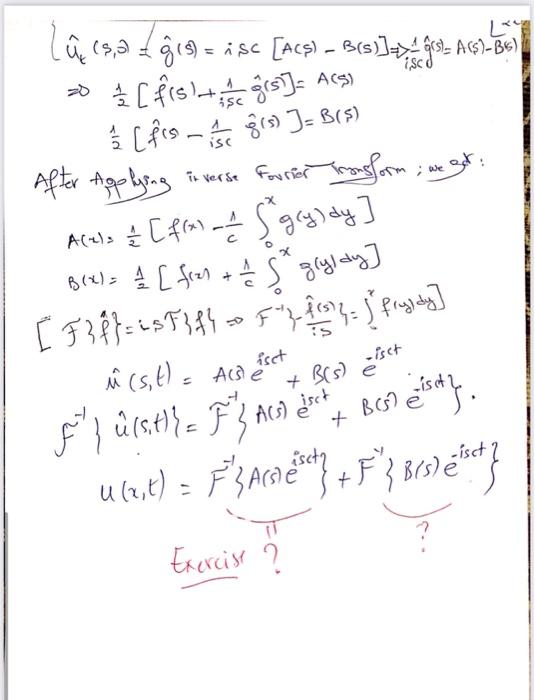 û_t (s,0) = ĝ(s) = isc [A(s) - B(s)] => 1/isc ĝ(s) = A(s)-B(s)
=> 1/2 [f̂(s) + 1/isc ĝ(s)] = A(s)
1/2 [f̂(s) - 1/isc ĝ(s)] = B(s)
After Applying inverse Fourier Transform ; we get :
A(x) = 1/2 [f(x) - 1/c ∫_0^x g(y) dy]
B(x) = 1/2 [f(x) + 1/c ∫_0^x g(y) dy]
[F{f̂} = is F{f} => F^-1{f̂(s)/is} = ∫^x f(y) dy]
û (s,t) = A(s) e^{isct} + B(s) e^{-isct}
F^-1 { û(s,t) } = F^-1 { A(s) e^{isct} + B(s) e^{-isct} } .
u (x,t) = F^-1 { A(s) e^{isct} } + F^-1 { B(s) e^{-isct} }
= ?
Exercise ?